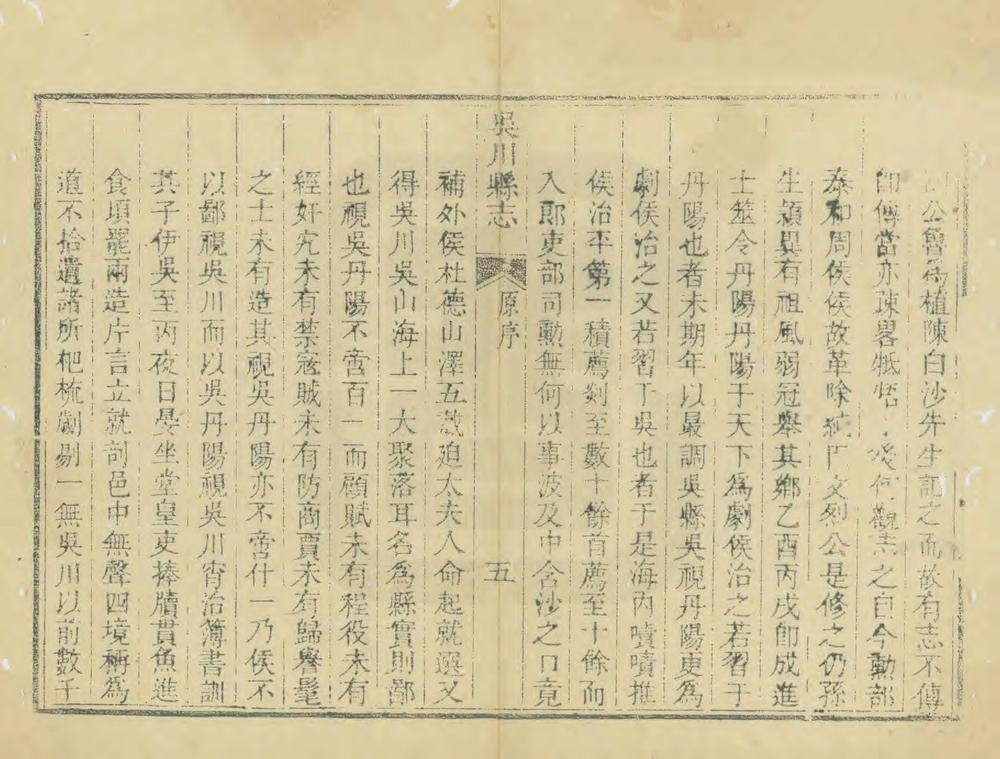 公魯衛植陳白沙先生記之而故有志不傳
即傳當亦疎畧牴牾何觀焉之自今勳部
泰和周侯侯故革除公是修之仍孫
生穎異有祖風弱冠舉其鄉乙酉丙戌卽成進
士筮令丹陽丹陽于天下爲劇侯治之若習于
丹陽也者未期年以最調吳縣吳視丹陽更爲
劇侯治之又若習于吳也者于是海內嘖嘖推
侯治平第一積薦剡至數十餘首薦至十餘而
入郎吏部司勳無何以事波及中含沙之口竟
吳川縣志
原序
五
補外侯杜德山澤五載迫太夫人命起就選又
得吳川吳山海上一大聚落耳名爲縣實則鄙
也視吳丹陽不啻百一而顧賦未有程役未有
經奸宄未有禁寇賊未有防商賈未有歸譽髦
之士未有造其視吳丹陽亦不啻什一乃侯不
以鄙視吳川而以吳丹陽視吳川宵治簿書訓
其子伊吳至丙夜日晏坐堂皇吏捧牘貫魚進
食頃罷兩造片言立就剖邑中無聲四境稱爲
道不拾遺諸所杷梳劚剔一無吳川以前數千